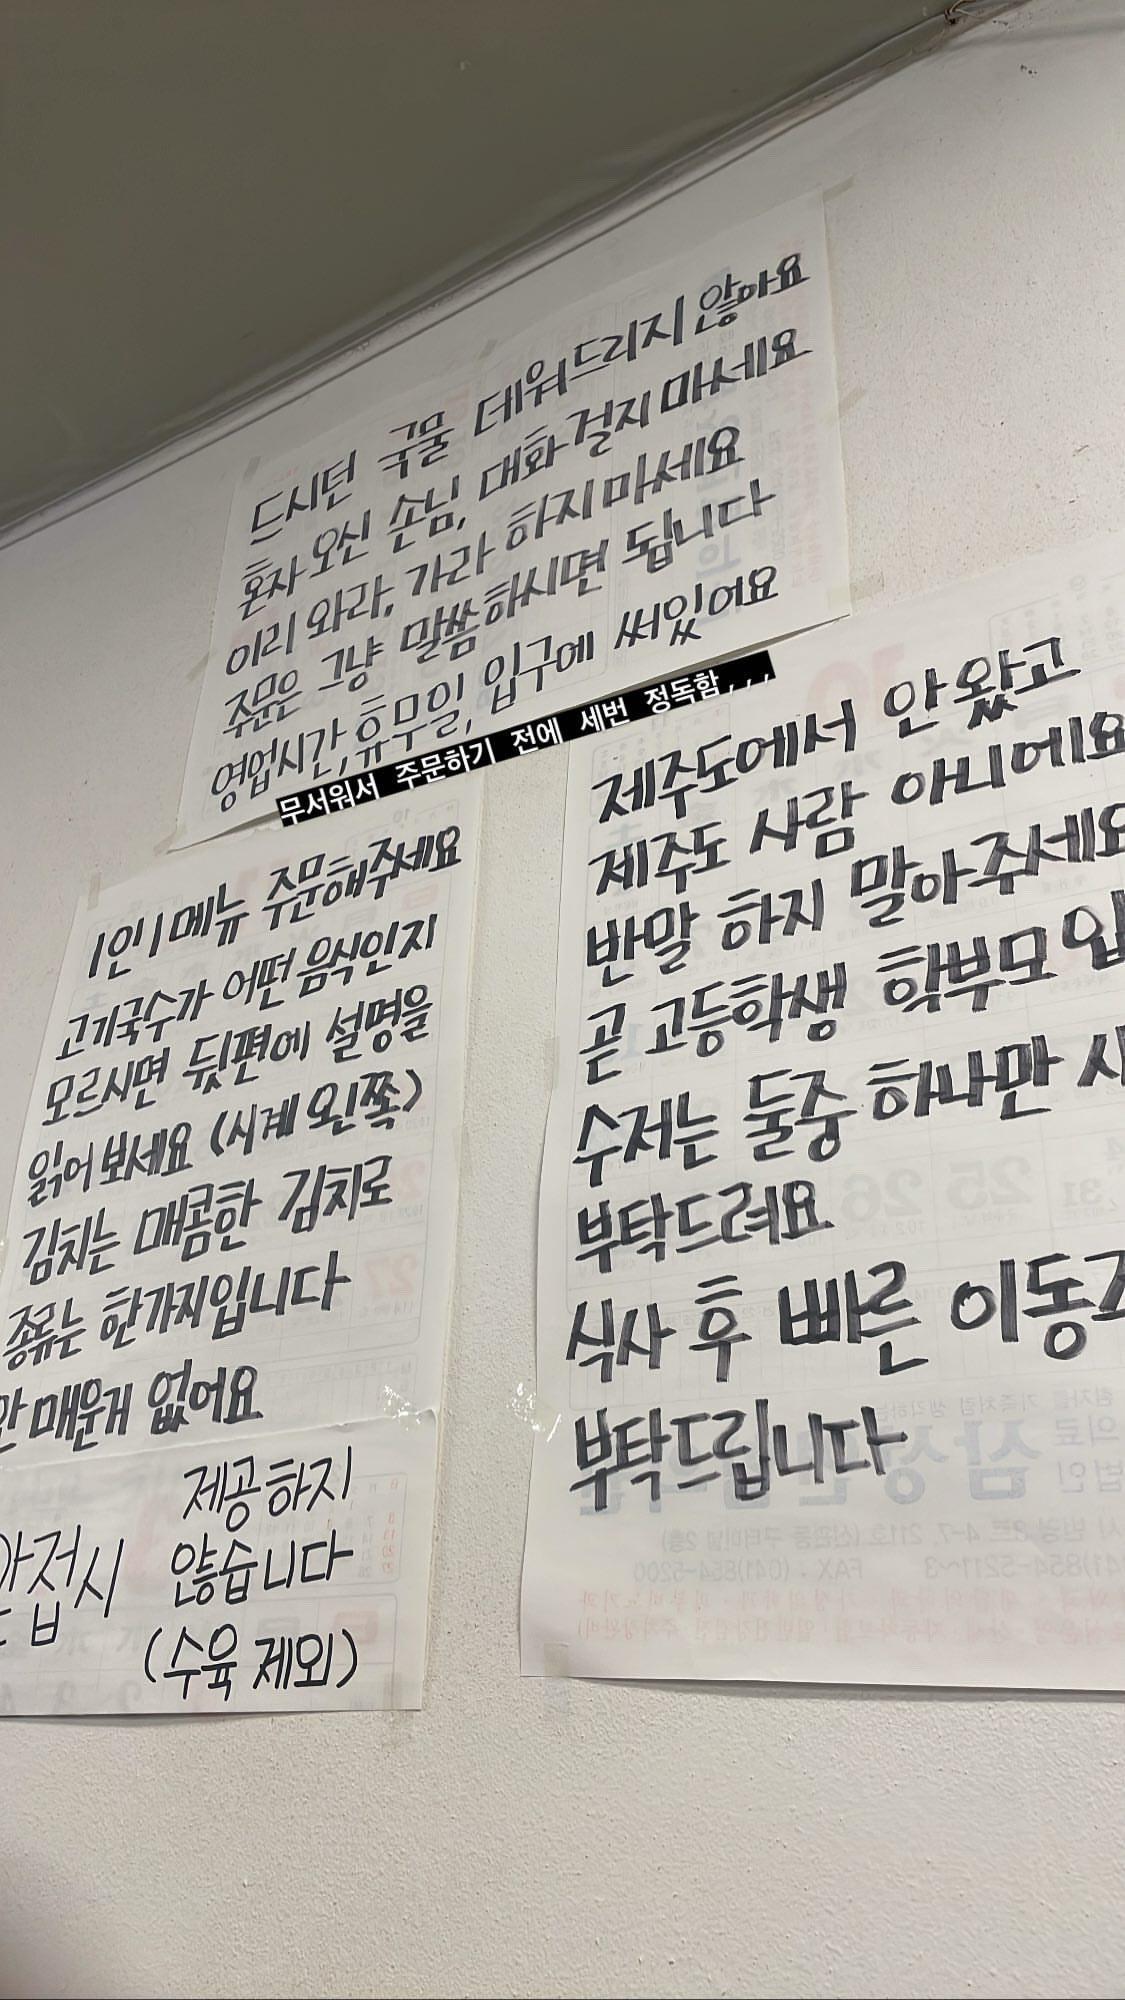 드시던 국물 데워드리지 않아요
혼자 오신 손님, 대화 걸지 마세요
이리 와라, 가라 하지마세요
주문은 그냥 말씀하시면 됩니다
영업시간, 휴무일, 입구에 써있어요
무서워서 주문하기 전에 세번 정독함,,,
1인 1메뉴 주문해주세요
고기국수가 어떤 음식인지
모르시면 뒷편에 설명을
읽어 보세요 (시계 왼쪽)
김치는 매콤한 김치로
종류는 한가지입니다
안 매운게 없어요
제공하지
앞접시 않습니다
(수육 제외)
제주도에서 안 왔고
제주도 사람 아니에요
반말 하지 말아주세요
곧 고등학생 학부모 입
수저는 둘중 하나만 사
부탁드려요
식사 후 빠른 이동
부탁드립니다
25 26
31
27
FAX : (041)854-5200